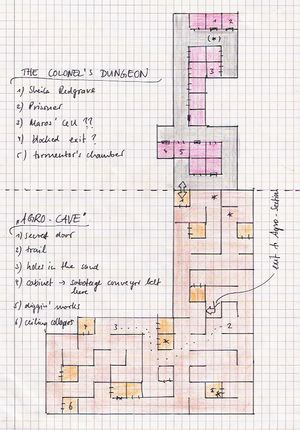 THE COLONEL'S DUNGEON
1) Sheila Redgrave
2) Prisoner
3) Maras' Cell ??
4) blocked exit ?
5) tormentor's chamber
"AGRO-CAVE"
1) secret door
2) trail
3) holes in the sand
4) cabinet → sabotage conveyor belt
here
5) diggin' works
6) ceiling collapses
exit to Agro-Section
1
2
(*)
3
4
5
3
2
5
6